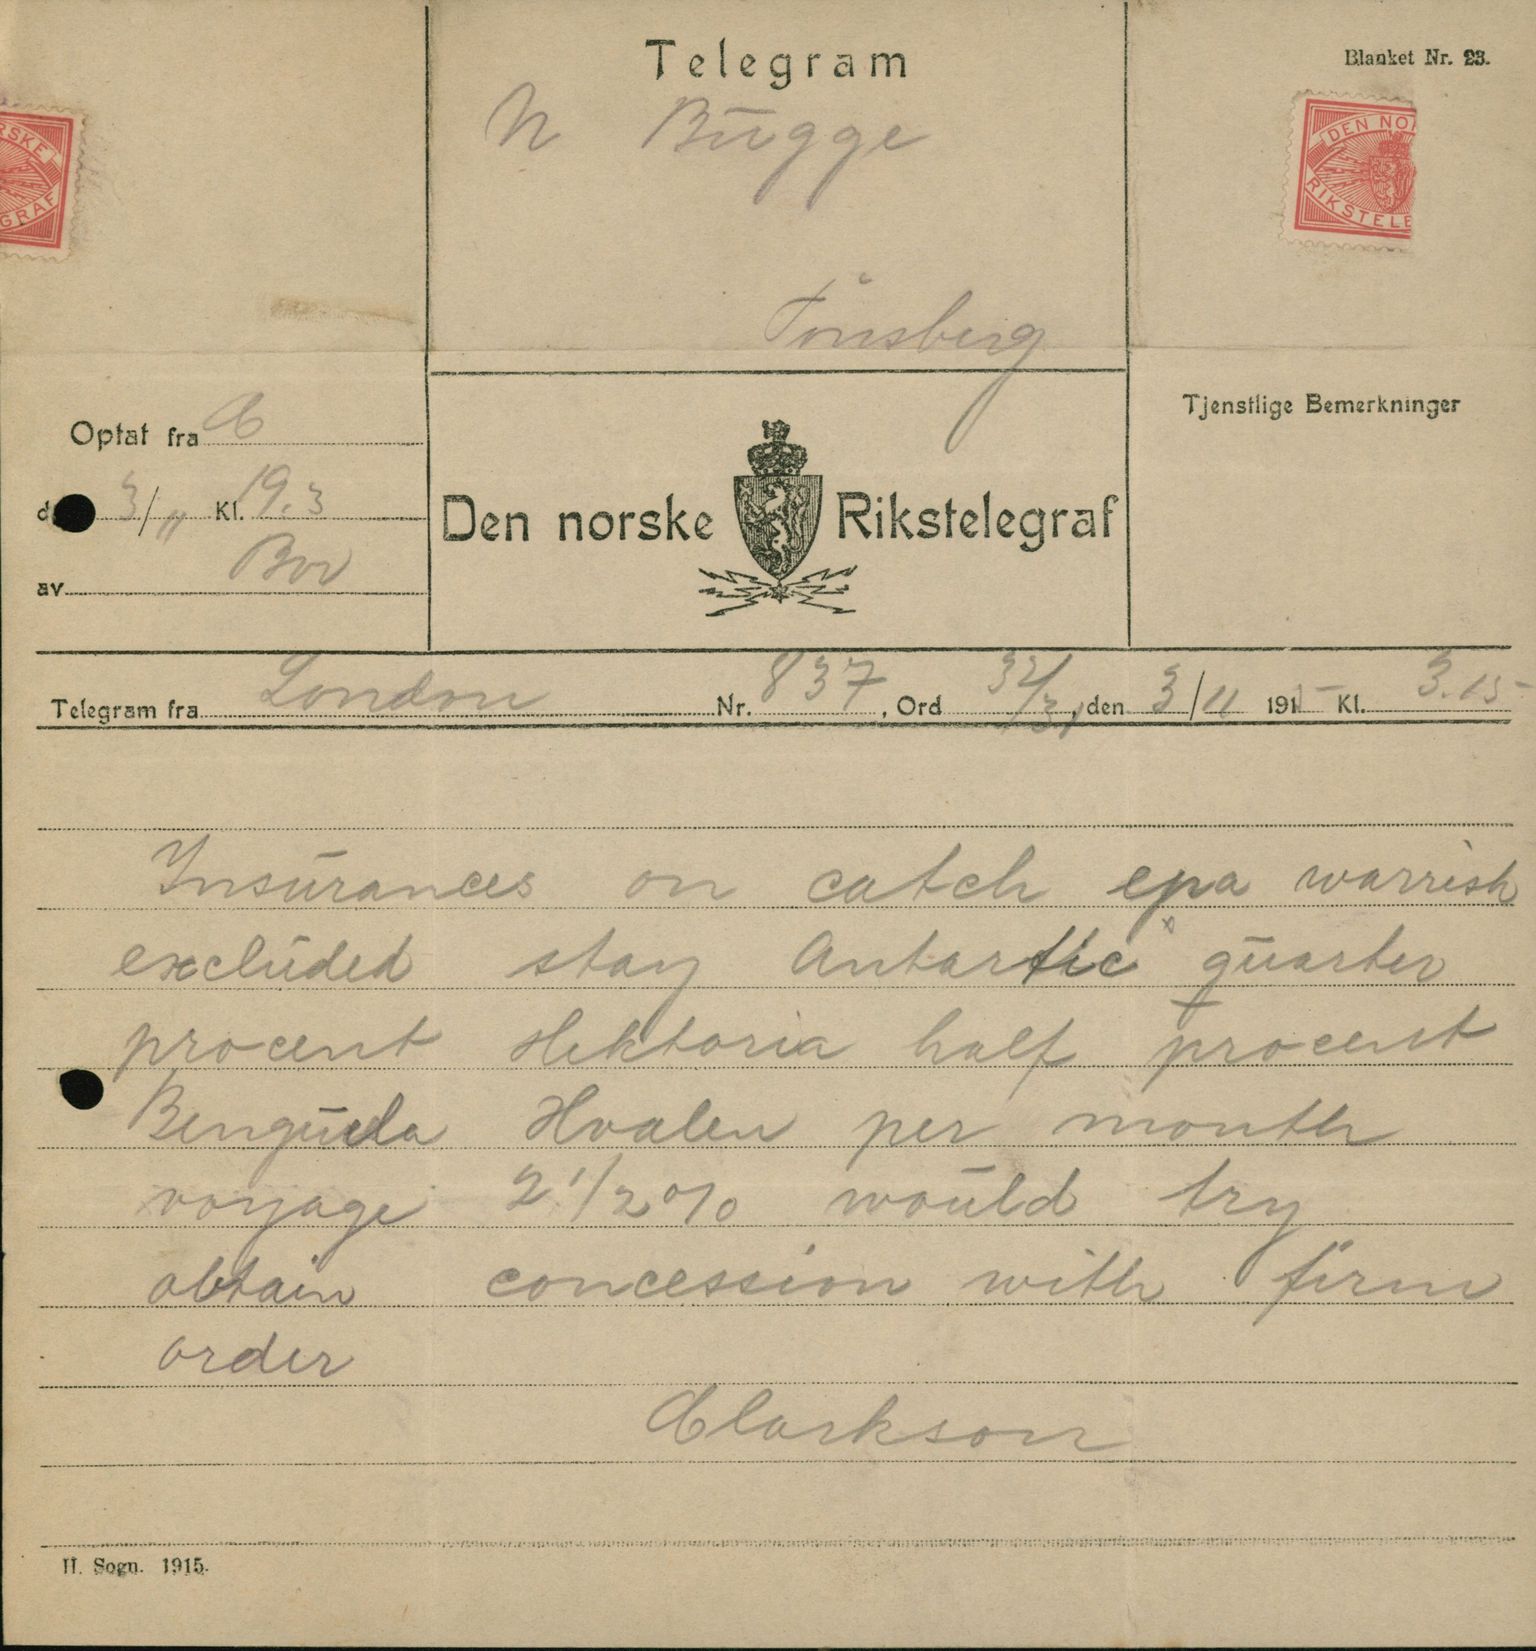 Telegram
Blanket Nr. 23.
N Bugge
RSKE
GRAF
DEN NOR
RIKSTELE
Tönsberg
Optat fra C
3/11 Kl. 19.3
av
Tjenstlige Bemerkninger
Den norske Rikstelegraf
Telegram fra London Nr. 837, Ord 32/31, den 3/11 1915 Kl. 3.15
Insurances on catch epa warrish
excluded stay Antartic quarter
procent Hektoria half procent
Benguela Hvalen per month
voyage 2 1/2 % would try
obtain concession with firm
order
Clarkson
H. Sogn. 1915.